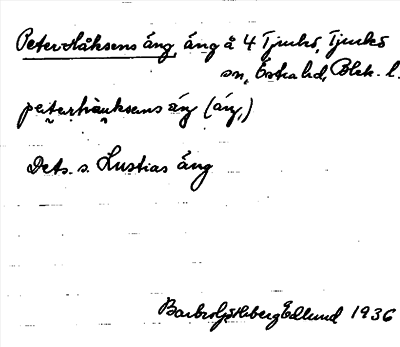 Peter Håksens äng, äng å 4 Tjurkö, Tjurkö
sn, Östra hd, Blek. l.
peterhåuksens äŋ (äŋ,)
Dets. s. Lustias äng
Edlund 1936